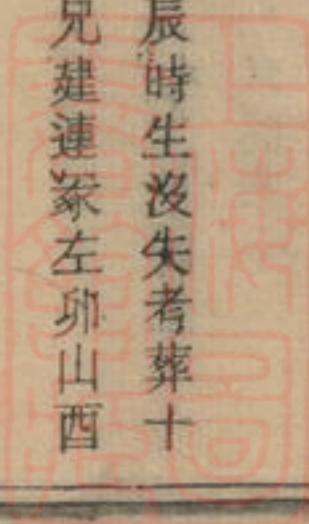 辰時生沒失考葬十
兄建連冢左卯山酉